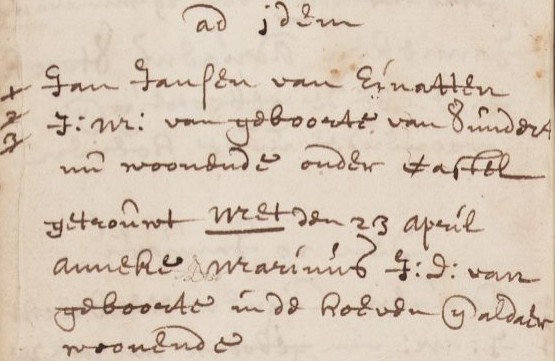 ad jdem
1 Jan Jansen van Einatten
2 J: m: van geboorte van Sundert
3 nu woonende onder Castel
getrouwt met den 23 april
anneke Marinus J: d: van
geboorte in de hoeven en aldaer
woonende